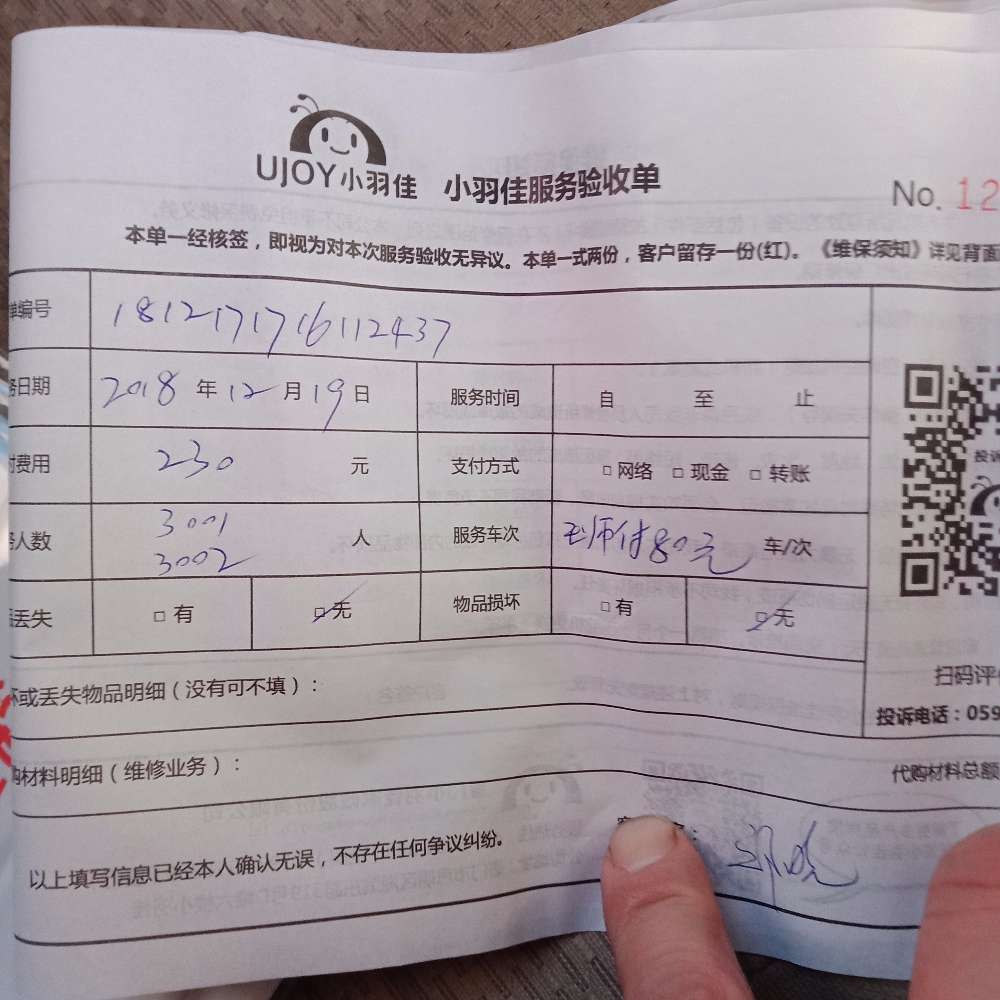 UJOY小羽佳 小羽佳服务验收单
No. 12
本单一经核签，即视为对本次服务验收无异议。本单一式两份，客户留存一份(红)。《维保须知》详见背面
单编号 1812171716112437
务日期 2018 年 12 月 19 日 服务时间 自 至 止
付费用 230 元 支付方式 □网络 □现金 □转账
务人数 3001 人 服务车次 付80元 车/次
3002
丢失 □有 □无 物品损坏 □有 □无
坏或丢失物品明细（没有可不填）：
扫码评价
投诉电话：059
购材料明细（维修业务）： 代购材料总额
以上填写信息已经本人确认无误，不存在任何争议纠纷。